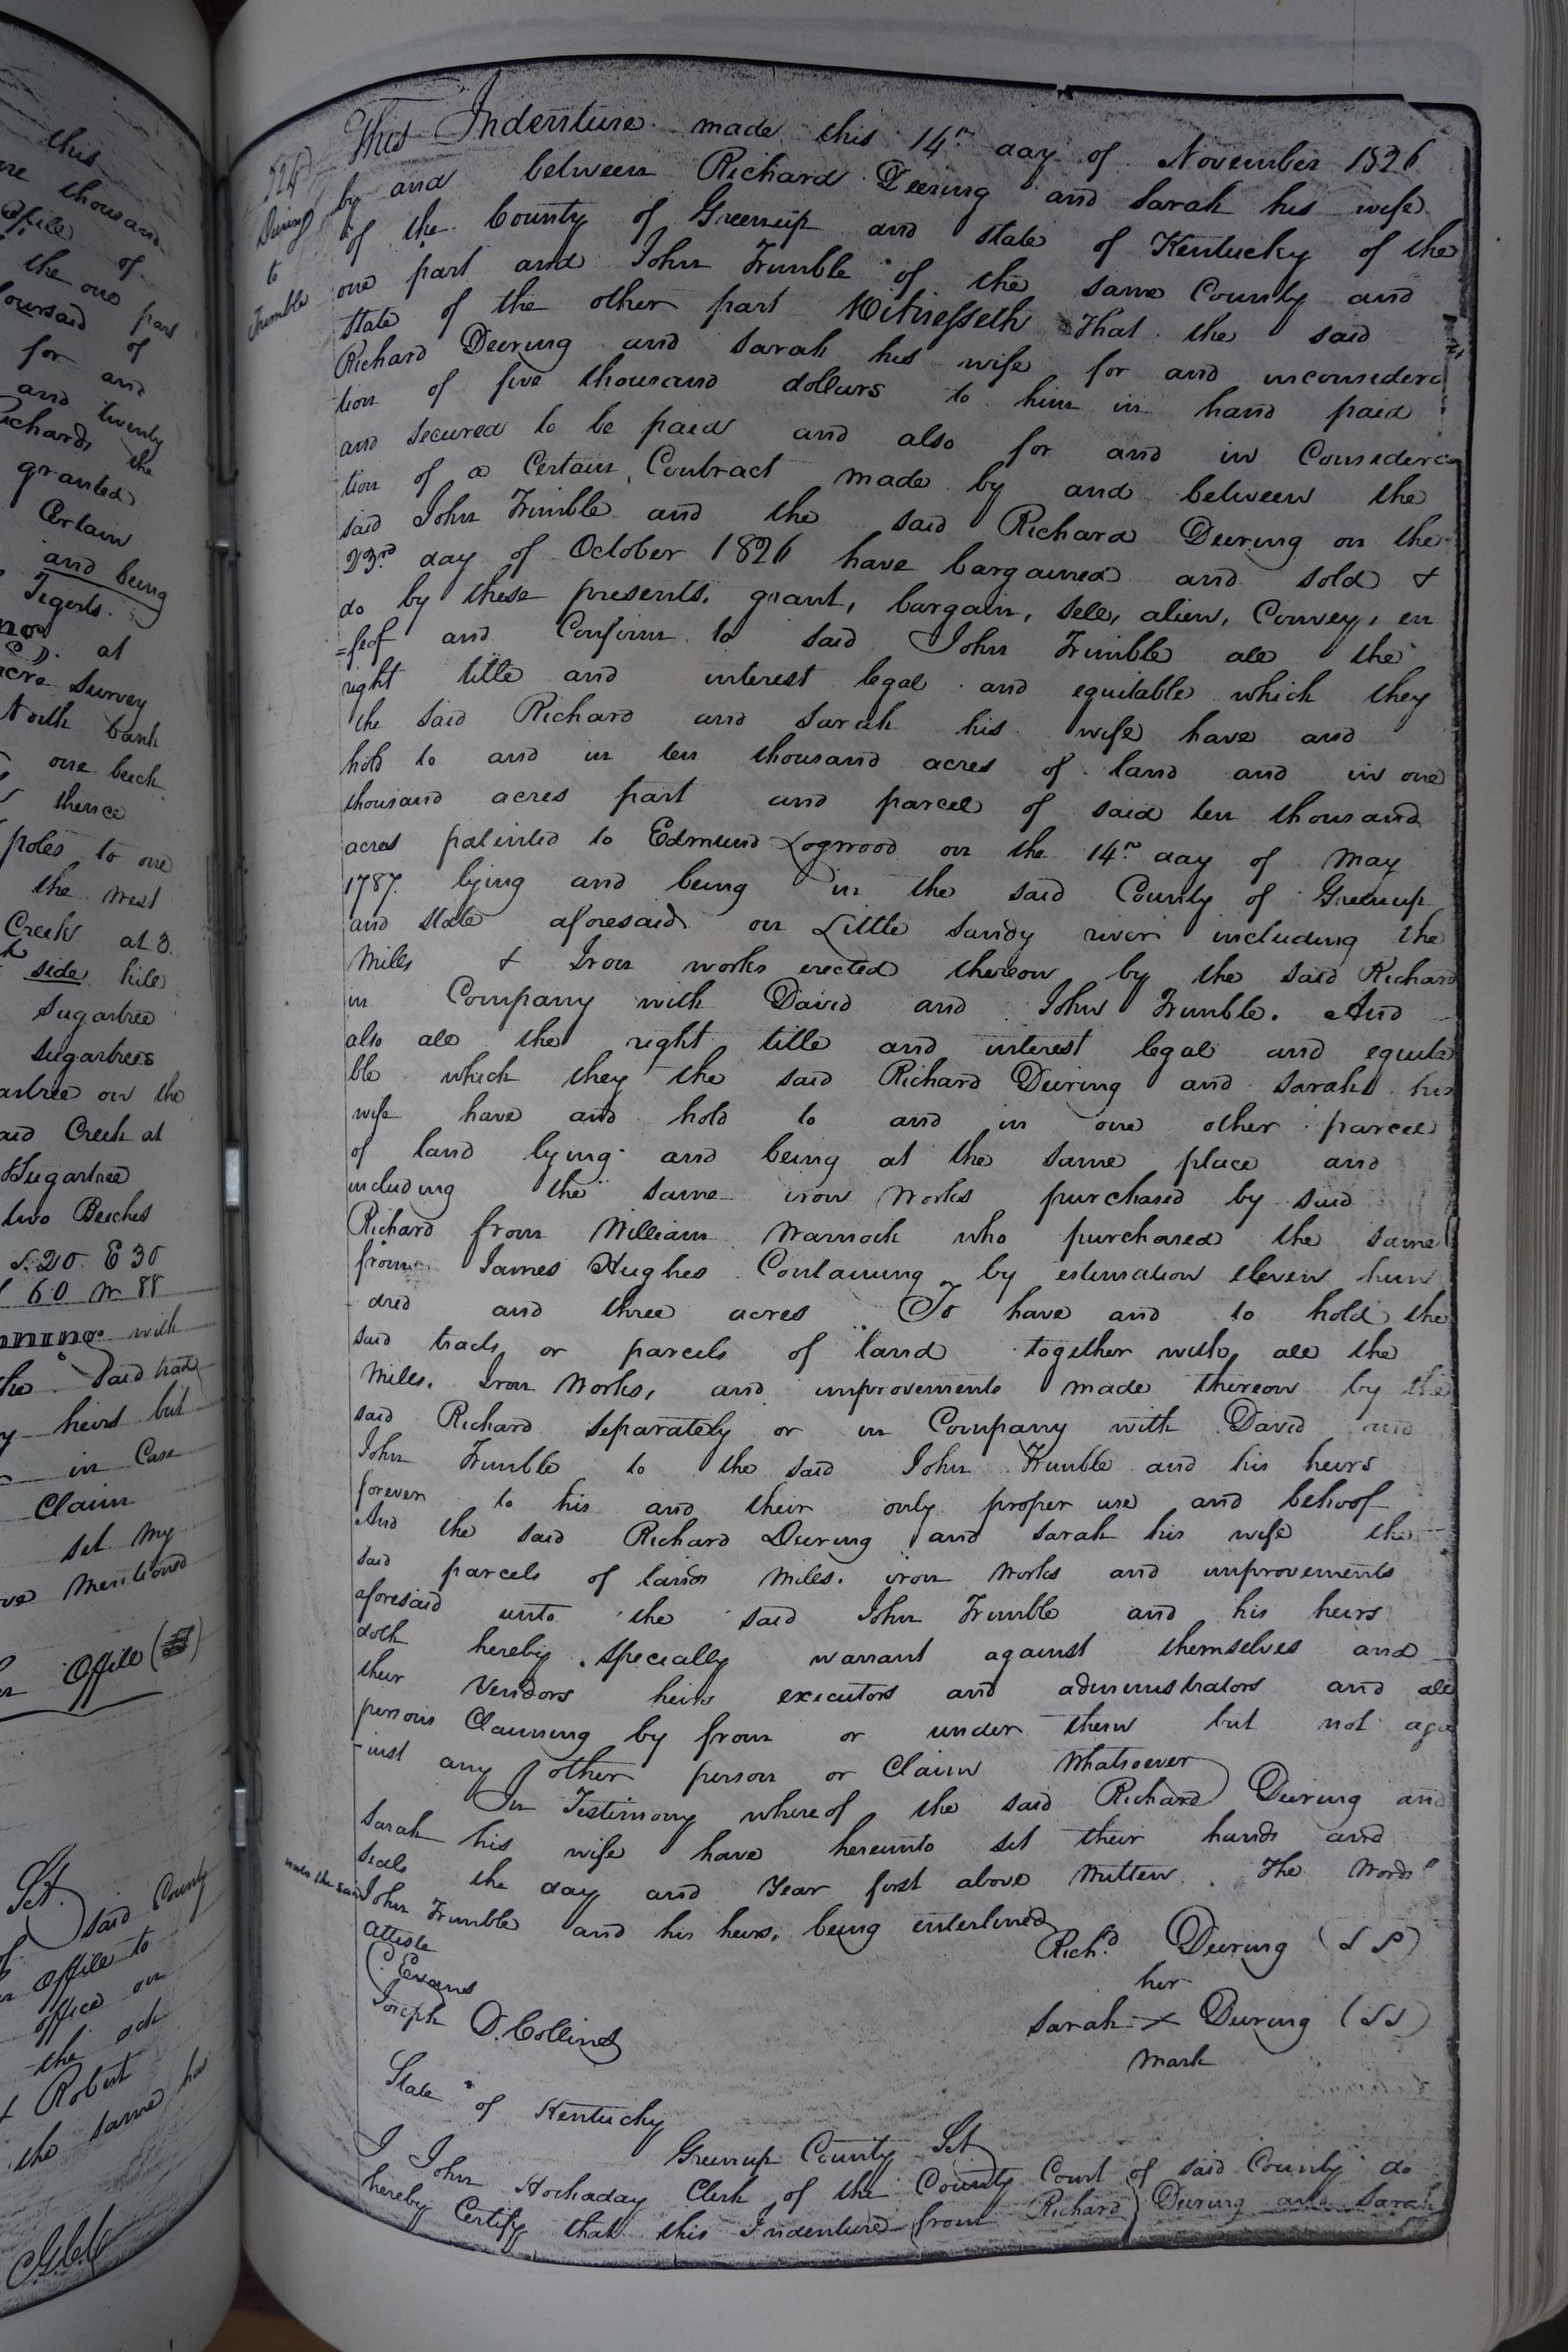 this
thousand
Office of
the one part
of
for and
and twenty
Richards the
granted
Certain
and being
Tigerts.
at
acre Survey
North bank
one beech
thence
poles to one
the West
Creek at 3.
side hile
Sugartree
Sugartrees
on the
Creek at
Sugartree
two Beeches
S. 20 E 30
60 W 88
with
Said tract
heirs but
in Case
Claim
set my
Mentioned
Office
Sct
said County
office to
office on
the
Robert
the same has
Deering
to
Trimble
This Indenture made this 14th day of November 1826
by and between Richard Deering and Sarah his wife
of the County of Greenup and state of Kentucky of the
one part and John Trimble of the same County and
state of the other part Witnesseth That the said
Richard Deering and Sarah his wife for and inconsidera
tion of five thousand dollars to him in hand paid
and secured to be paid and also for and in Considera
tion of a Certain Contract made by and between the
said John Trimble and the said Richard Deering on the
23rd day of October 1826 have bargained and sold &
do by these presents, grant, bargain, sell, alien, Convey, en
=feof and Confirm to said John Trimble all the
right title and interest legal and equitable which they
the said Richard and Sarah his wife have and
hold to and in ten thousand acres of land and in one
thousand acres part and parcel of said ten thousand
acres patented to Edmund Logwood on the 14th day of May
1787. lying and being in the said County of Greenup
and state aforesaid on Little Sandy river including the
Mills & Iron works erected thereon by the said Richard
in Company with David and John Trimble. And
also all the right title and interest legal and equita
ble which they the said Richard Deering and Sarah his
wife have and hold to and in one other parcel
of land lying and being at the same place and
including the same iron Works purchased by said
Richard from William Warnock who purchased the same
from James Hughes Containing by estimation eleven hun
-dred and three acres To have and to hold the
said tracts or parcels of land together with all the
Mills, Iron Works, and improvements made thereon by the
said Richard separately or in Company with David and
John Trimble to the said John Trimble and his heirs
forever to his and their only proper use and behoof
And the said Richard Deering and Sarah his wife the
said parcels of land Mills, iron Works and improvements
aforesaid unto the said John Trimble and his heirs
doth hereby specially warrant against themselves and
their Vendors heirs executors and administrators and all
persons Claiming by from or under them but not aga
-inst any other person or Claim Whatsoever
In Testimony whereof the said Richard Deering and
Sarah his wife have hereunto set their hands and
seals the day and Year first above Written. The Words "
unto the said John Trimble and his heirs, being interlined
Atteste
Evans
Joseph D. Collins
Richd. Deering (LS)
her
Sarah X Deering (LS)
Mark
State of Kentucky
Greenup County Sct
I John Hockaday Clerk of the County Court of said County do
hereby Certify that this Indenture from Richard Deering and Sarah